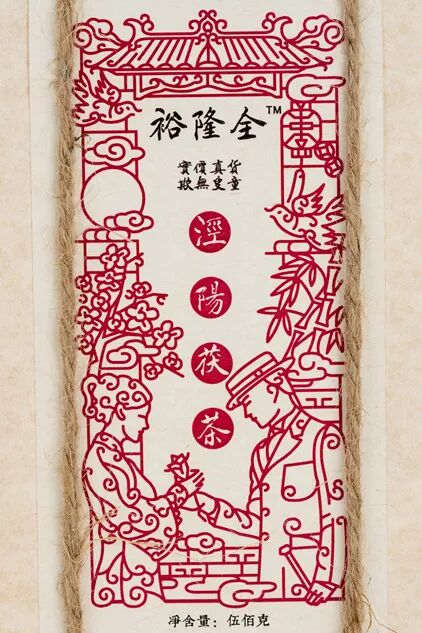 裕隆全™
實價真貨
欺無叟童
涇
陽
茯
茶
淨含量：伍佰克